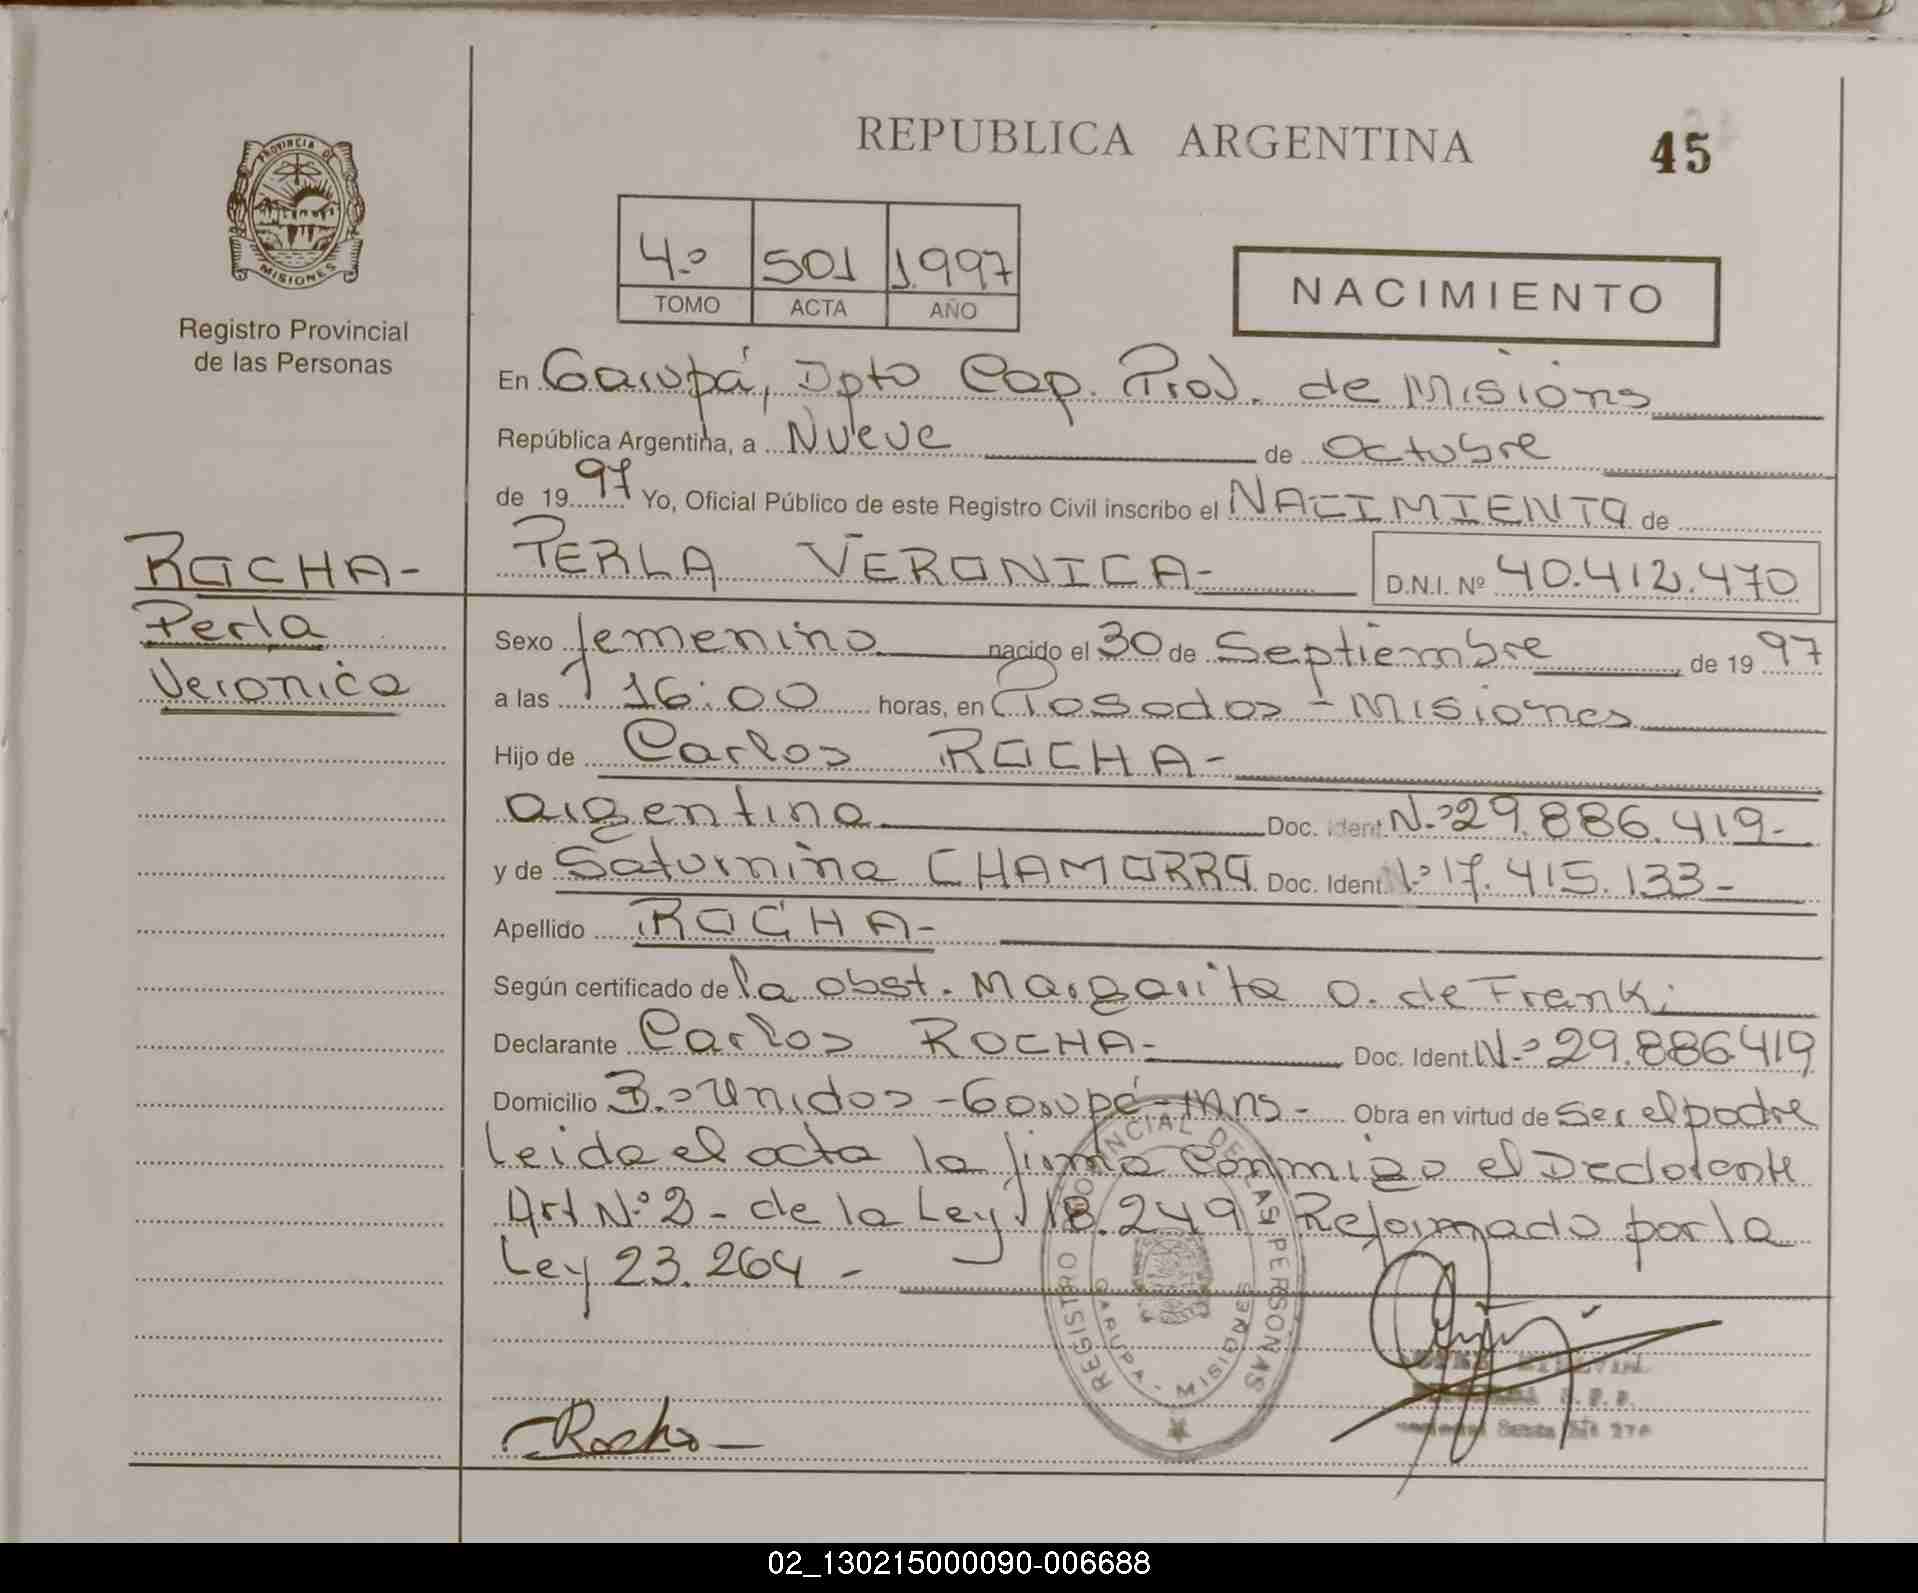 REPUBLICA ARGENTINA
45
PROVINCIA DE
MISIONES
Registro Provincial
de las Personas
4.º 501 1.997
TOMO ACTA AÑO
NACIMIENTO
En Garupá, Dpto Cap. Prov. de Misions
República Argentina, a Nueve de Octubre
de 1997 Yo, Oficial Público de este Registro Civil inscribo el NACIMIENTO de
PERLA VERONICA-
D.N.I. Nº 40.412.470
ROCHA-
Perla
Veronica
Sexo femenino nacido el 30 de Septiembre de 1997
a las 16:00 horas, en Posadas - Misiones
Hijo de Carlos ROCHA-
argentino Doc. Ident. N.º 29.886.419-
y de Saturnina CHAMORRO Doc. Ident. N.º 17.415.133-
Apellido ROCHA-
Según certificado de la obst. Margarita O. de Franki
Declarante Carlos ROCHA- Doc. Ident. N.º 29.886.419
Domicilio B.º Unidos - Garupá - Mns - Obra en virtud de Ser el padre
Leida el acta la firma conmigo el Declarante
Art N.º 2 - de la Ley 18.249 Reformado por la
Ley 23.264 -
REGISTRO PROVINCIAL DE LAS PERSONAS
GARUPA - MISIONES
Rocha
02_130215000090-006688